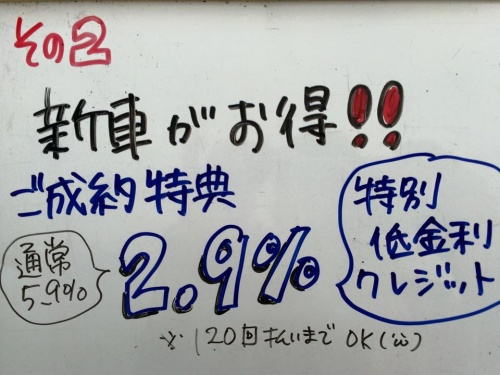 その2
新車がお得!!
ご成約特典
通常
5.9%
2.9%
特別
低金利
クレジット
※120回払いまでOK(^^)